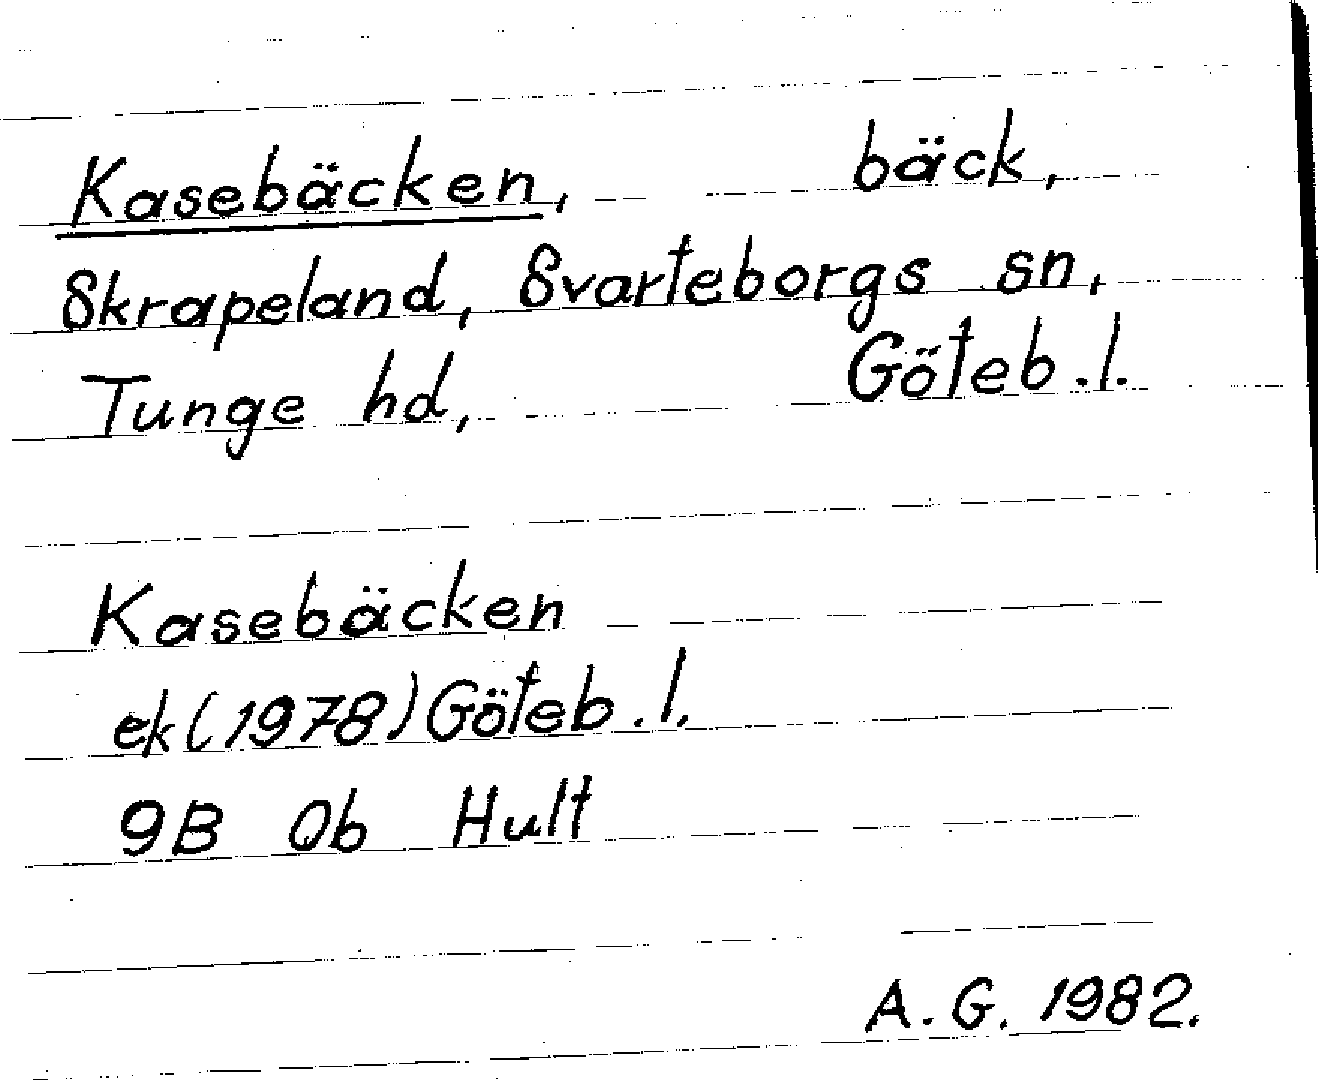 Kasebäcken, bäck,
Skrapeland, Svarteborgs sn,
Tunge hd, Göteb.l.
Kasebäcken
ek(1978)Göteb.l.
9B 0b Hult
A.G. 1982.